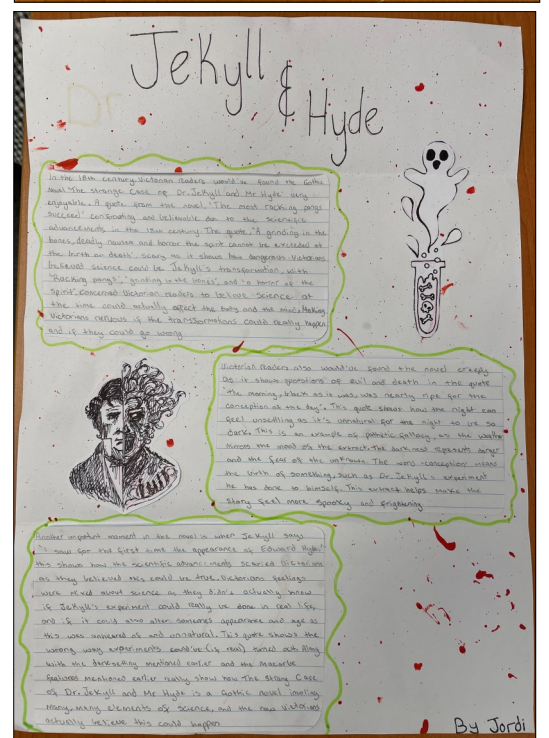 Jekyll
&
Hyde
Dr
In the 18th century Victorian readers would've found the Gothic
novel 'The strange Case of Dr. Jekyll and Mr Hyde' very
enjoyable. A quote from the novel, 'The most racking pangs
succeed' confronting and believable due to the scientific
advancements in the 18th century. The quote, "A grinding in the
bones, deadly nausea and horror the spirit cannot be exceeded at
the birth or death' scary as it shows how dangerous Victorians
believed science could be. Jekyll's transformation, with
"Racking pangs", "grinding in the bones", and "a horror of the
spirit", concerned Victorian readers to believe science at
the time could actually affect the body and the mind. Making
Victorians nervous if the transformations could really happen
and if they could go wrong
Victorian readers also would've found the novel creepy
as it shows of evil and death in the quote
"The morning, black as it was, was nearly ripe for the
conception of the day". This quote shows how the night can
feel unsettling as it's unnatural for the night to be so
dark. This is an example of pathetic fallacy, as the weather
mirrors the mood of the extract. The darkness represents danger
and the fear of the unknown. The word 'conception' means
the birth of something, such as Dr. Jekyll's experiment
he has done to himself. This extract helps make the
story feel more spooky and frightening
Another important moment in the novel is when Jekyll says
"I saw for the first time the appearance of Edward Hyde."
this shows how the scientific advancements scared Victorians
as they believed this could be true. Victorians feelings
were mixed about science as they didn't actually know
if Jekyll's experiment could really be done in real life,
and if it could also alter someones appearance and age as
this was unheared of and unnatural. This quote shows the
wrong way experiments could've (if real) turned out. Along
with the dark setting mentioned earlier and the Macabre
features mentioned earlier really show how The strang Case
of Dr. Jekyll and Mr Hyde is a Gothic novel
many, many elements of science, and the how Victorians
actually believe this could happen
By Jordi